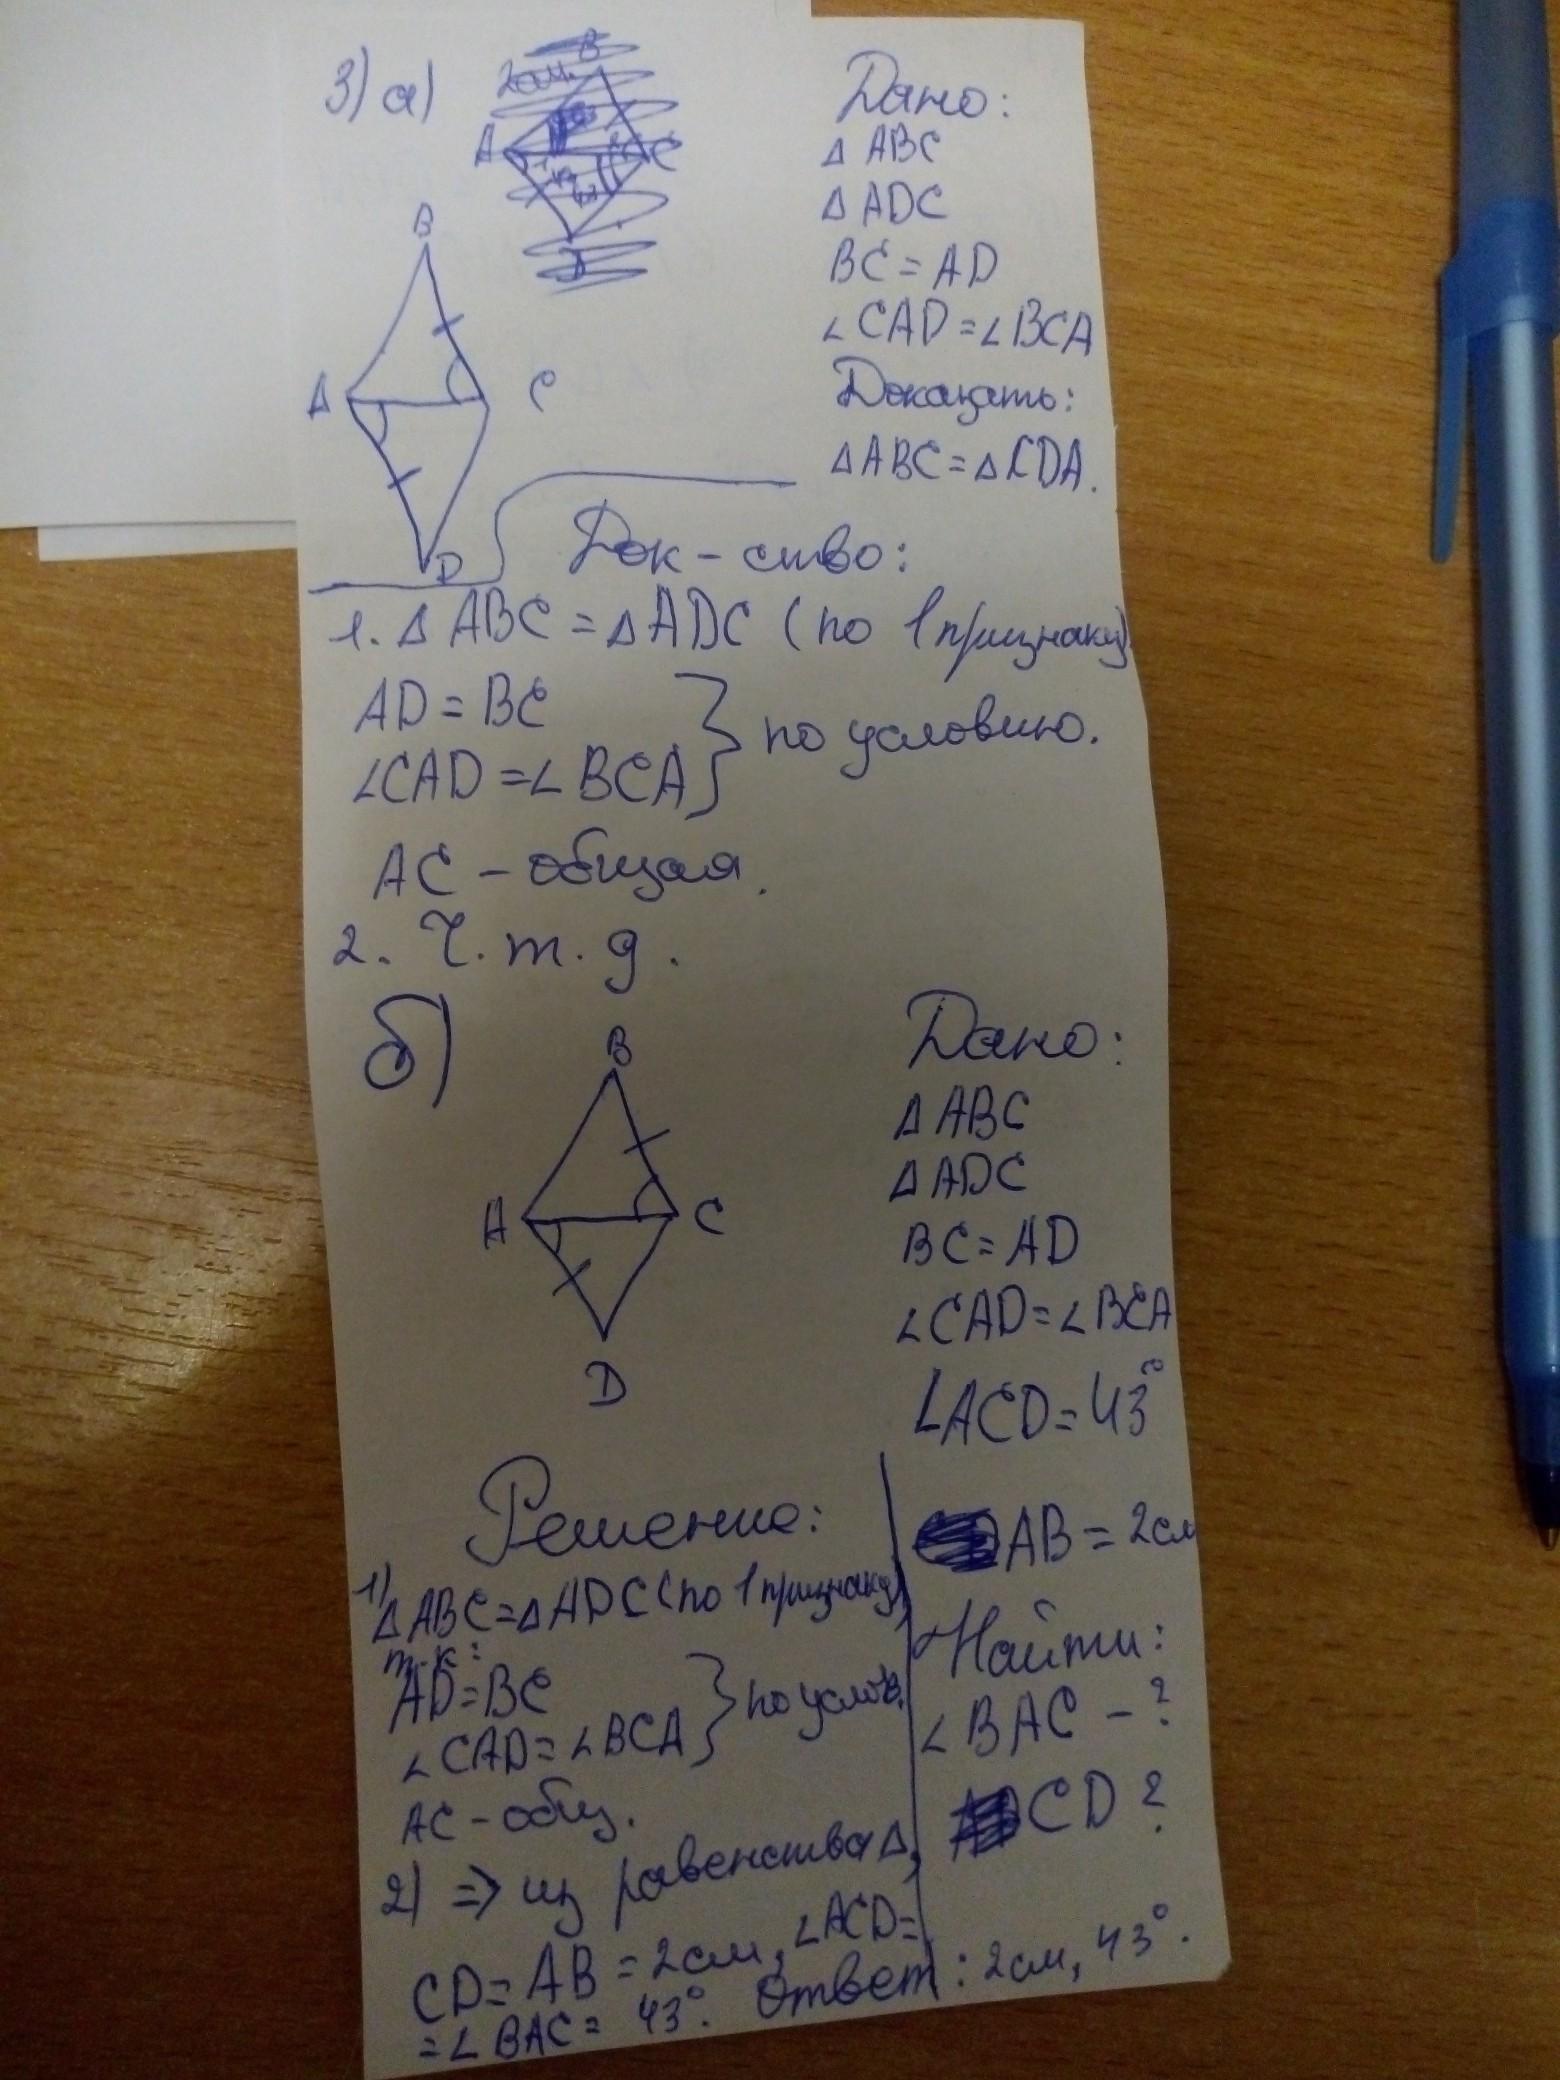 3) а)
B
A
C
D
Дано:
Δ ABC
Δ ADC
BC = AD
∠ CAD = ∠ BCA
Доказать:
Δ ABC = Δ CDA.
Док-ство:
1. Δ ABC = Δ ADC (по 1 признаку)
AD = BC
∠CAD = ∠ BCA } по условию.
AC – общая.
2. Ч.т.д.
б)
B
A
C
D
Дано:
Δ ABC
Δ ADC
BC = AD
∠CAD = ∠ BCA
∠ACD = 43°
AB = 2см
Найти:
∠ BAC – ?
CD ?
Решение:
1) Δ ABC = Δ ADC (по 1 признаку)
т.к:
AD = BC
∠ CAD = ∠ BCA } по услов.
AC – общ.
2) => из равенства Δ,
CD = AB = 2см, ∠ACD =
= ∠ BAC = 43°.
Ответ: 2см, 43°.